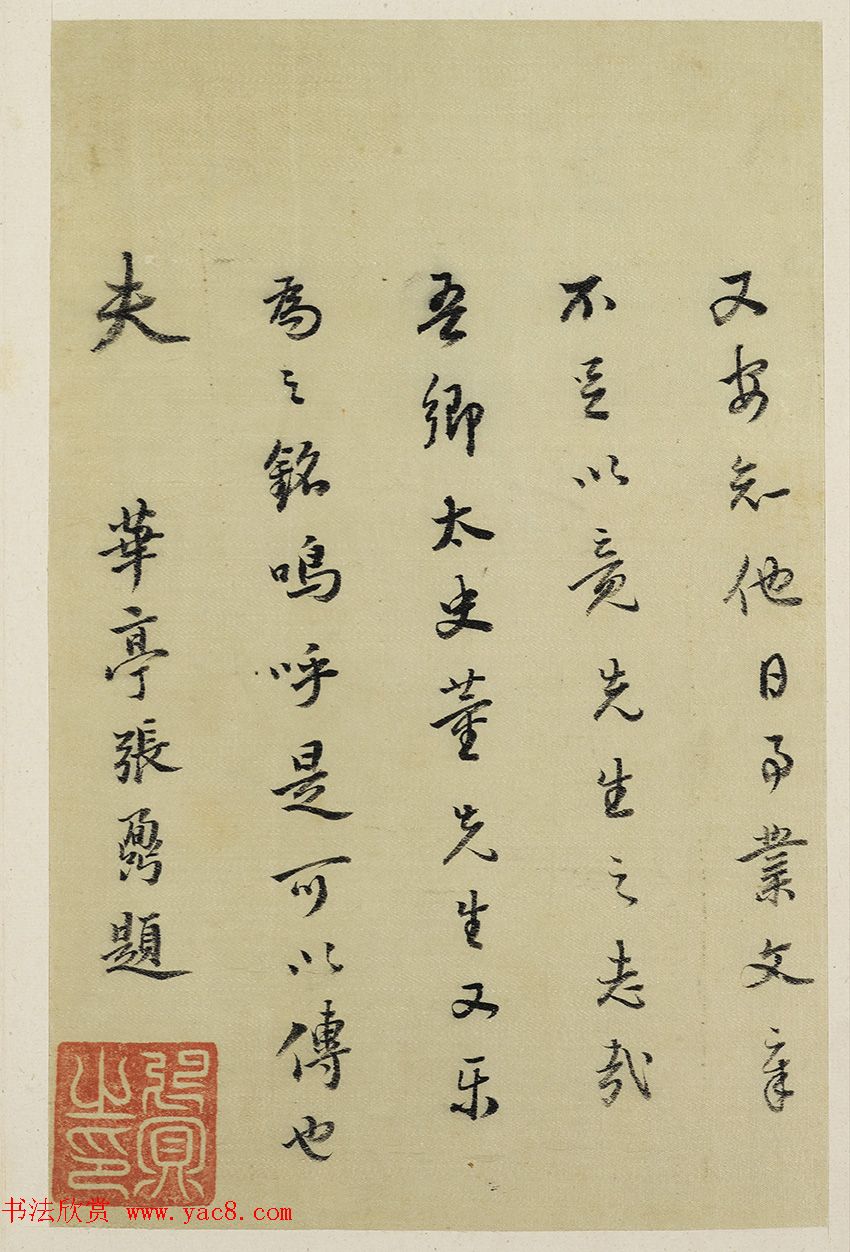 又安知他日事業文章
不足以竟先生之志哉
吾鄉太史董先生又乐
為之銘嗚呼是可以傳也
夫 華亭張鼐題
張鼐之印
书法欣赏 www.yac8.com